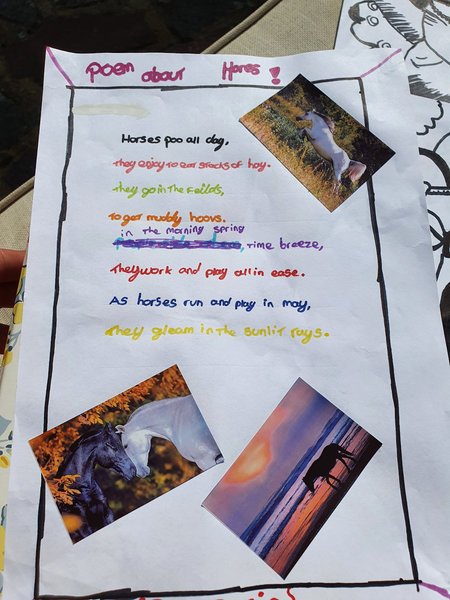 Poem about Hores!
Horses poo all day,
They enjoy to eat stacks of hay.
They go in the feilds,
To get muddy hoovs.
in the morning spring
time breeze,
They work and play all in ease.
As horses run and play in may,
They gleam in the sunlit rays.